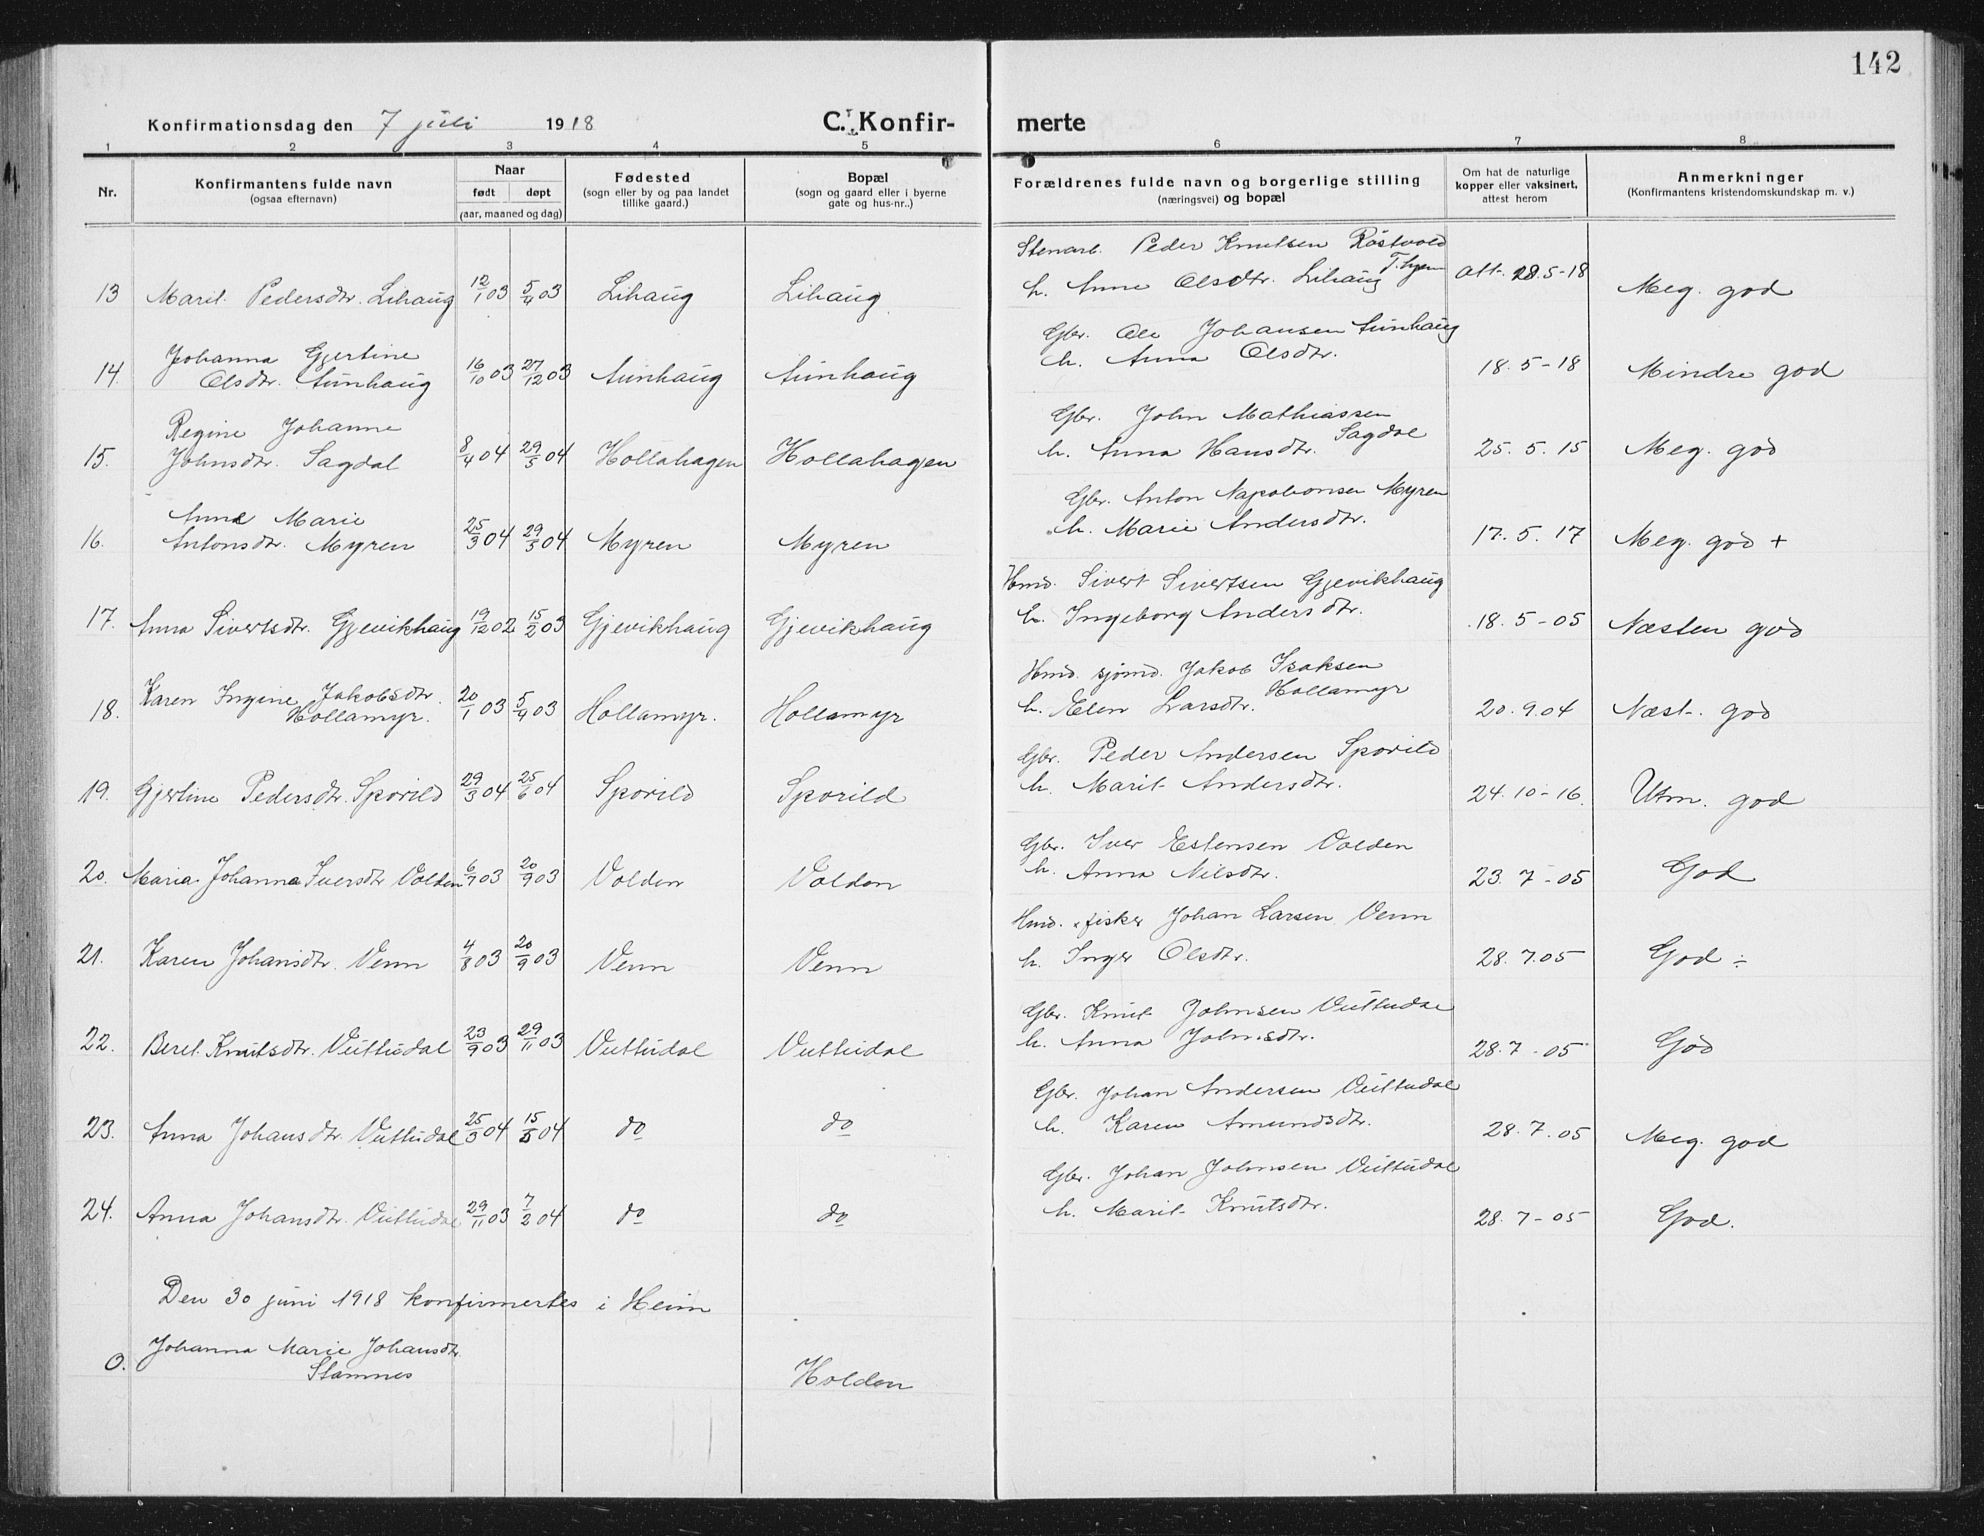 142
Konfirmationsdag den 7 juli 1918
C. Konfirmerte
1 2 3 4 5 6 7 8
Nr.
Konfirmantens fulde navn
(ogsaa efternavn)
Naar
født døpt
(aar, maaned og dag)
Fødested
(sogn eller by og paa landet
tillike gaard.)
Bopæl
(sogn og gaard eller i byerne
gate og hus-nr..)
Forældrenes fulde navn og borgerlige stilling
(næringsvei) og bopæl
Om hat de naturlige
kopper eller vaksinert,
attest herom
Anmerkninger
(Konfirmantens kristendomskundskap m. v.)
Stenarb. Peder Knutsen Röstvold
13 Marit Pedersdtr. Lihaug 12/1 03 5/4 03 Lihaug Lihaug h. Anne Olsdtr. Lihaug att. 28.5-18 Meg. god
Gbr. Ole Johansen Aunhaug
14. Johanna Gjertine
Olsdtr. Aunhaug 16/10 03 27/12 03 Aunhaug Aunhaug h. Anna Olsdtr. 18.5-18 Mindre god
Gbr. John Mathiassen Sagdal
15. Regine Johanne
Johnsdtr. Sagdal 8/4 04 29/5 04 Hollahagen Hollahagen h. Anna Hansdtr. 25.5.15 Meg. god
Gbr. Anton Napoleonsen Myren
16. Anne Marie
Antonsdtr. Myren 25/3 04 29/5 04 Myren Myren h. Marie Andersdtr. 17.5.17 Meg. god +
Hmd. Sivert Sivertsen Gjevikhaug
17. Anna Sivertsdtr. Gjevikhaug 19/12 02 15/2 03 Gjevikhaug Gjevikhaug h. Ingeborg Andersdtr. 18.5-05 Næsten god
Hmd. sjømd. Jakob Isaksen Hollamyr
18. Karen Ingine Jakobsdtr.
Hollamyr. 20/1 03 5/4 03 Hollamyr. Hollamyr h. Elen Larsdtr. 20.9.04 Næst. god
Gbr. Peder Andersen Sporild
19. Gjertine Pedersdtr. Sporild 29/3 04 25/6 04 Sporild Sporild h. Marit Andersdtr. 24.10-16. Utm. god
Gbr. Iver Estensen Volden
20. Maria Johanna Iversdtr Volden 6/7 03 20/9 03 Volden Volden h. Anna Nilsdtr. 23.7-05 God
Hmd. fisker Johan Larsen Venn
21. Karen Johansdtr. Venn 4/8 03 20/9 03 Venn Venn h. Inger Olsdtr. 28.7.05 God ÷
Gbr. Knut Johnsen Vuttudal
22. Beret Knutsdtr. Vuttudal 23/9 03 29/11 03 Vuttudal Vuttudal h. Anna Johnsdtr. 28.7-05 God
Gbr. Johan Andersen Vuttudal
23. Anna Johansdtr. Vuttudal 25/3 04 15/5 04 do do h. Karen Amundsdtr. 28.7.05 Meg. god
Gbr. Johan Johnsen Vuttudal
24. Anna Johansdtr. Vuttudal 29/11 03 7/2 04 do do h. Marit Knutsdtr. 28.7-05 God.
Den 30 juni 1918 konfirmertes i Heim
0. Johanna Marie Johansdtr.
Stamnes Holden